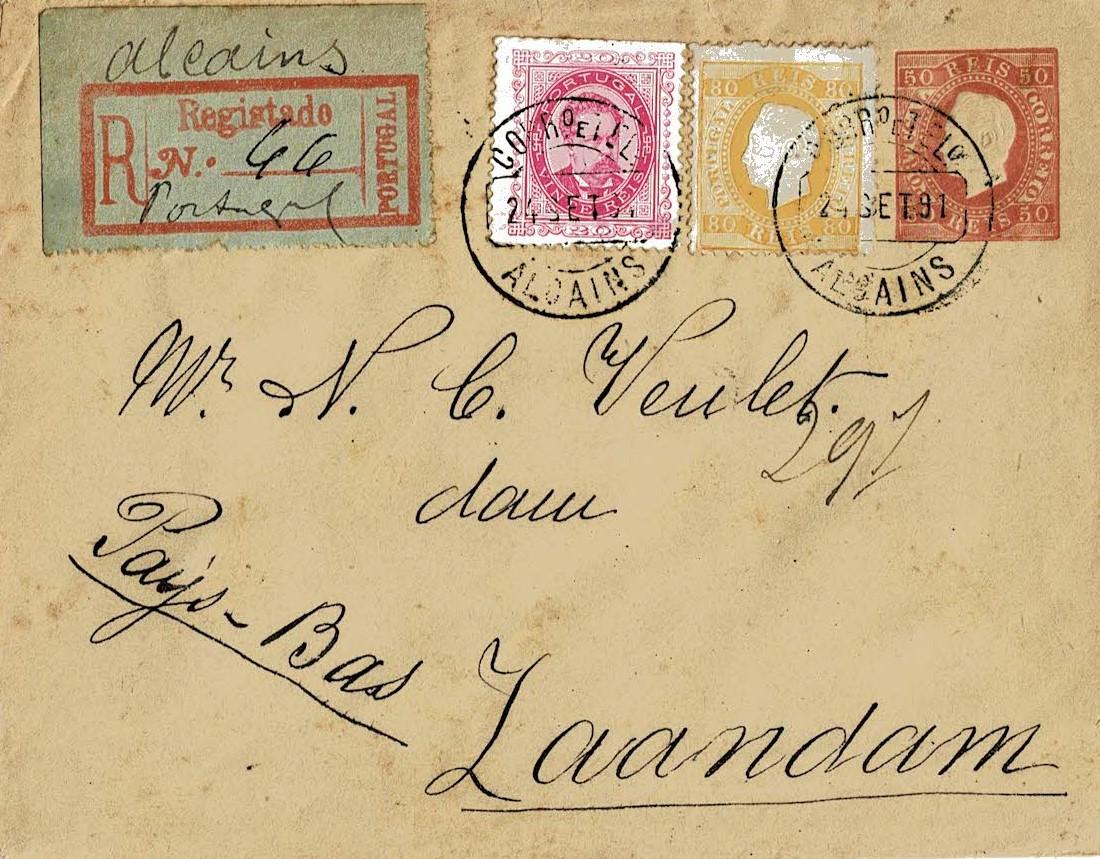 Alcains
R Registado
N. 46
PORTUGAL
Portugal
20 20
PORTUGAL
VINTE REIS
20
80 REIS 80
PORTUGAL
80 REIS 80
50 REIS 50
CORREIOS
REIS 50
CORRO E TEL
24 SET 91
ALCAINS
CORRO E TELO
24 SET 91
ALCAINS
Mr. N. C. Veulet.
297
dam
Pays-Bas
Zaandam